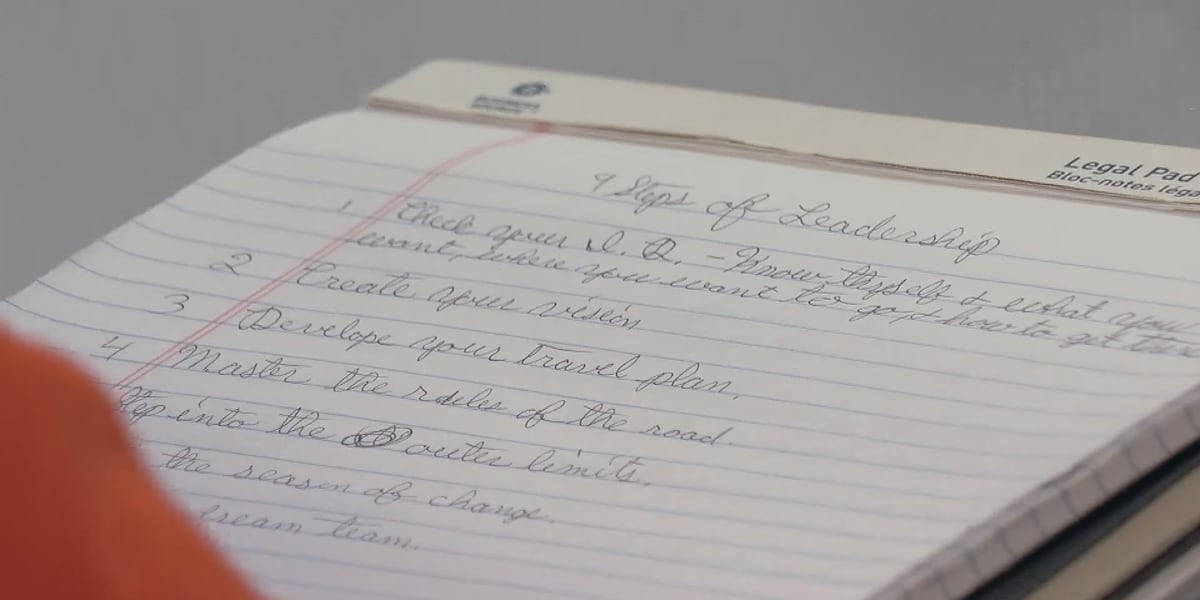 Legal Pad
Bloc-notes léga
9 Steps of Leadership
1 Check your I.Q. - Know thyself & what you
want, where you want to go & how to get
2 Create your vision
3 Develope your travel plan.
4 Master the rules of the road.
Step into the outer limits.
the season of change.
team.